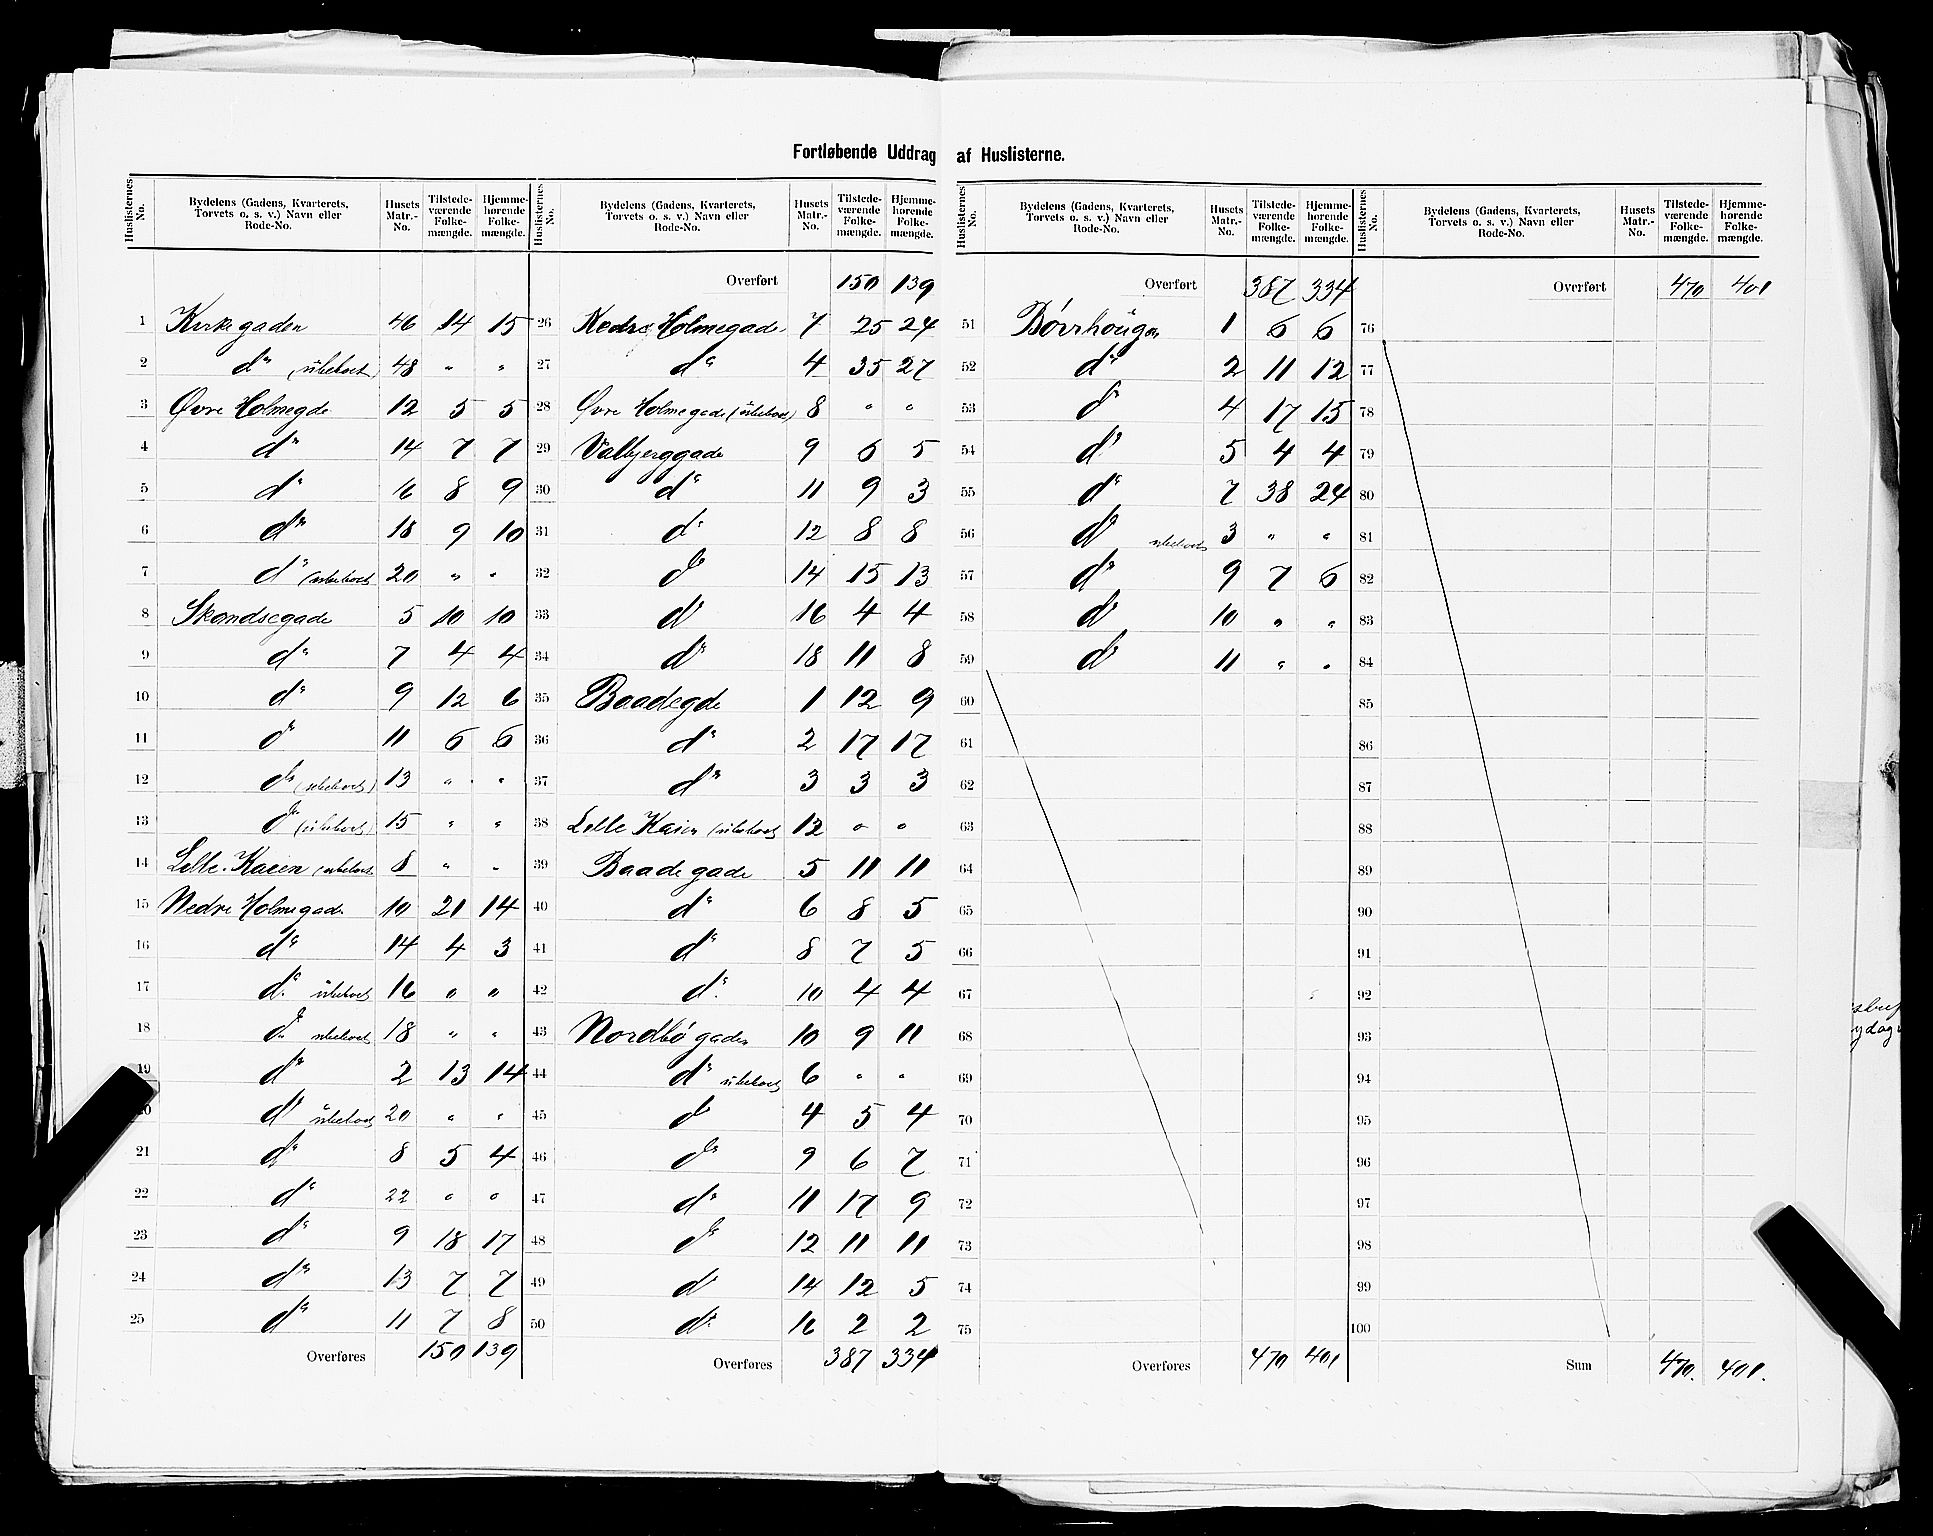 Fortløbende Uddrag af Huslisterne.
Huslisternes No. | Bydelens (Gadens, Kvarterets, Torvets o. s. v.) Navn eller Rode-No. | Husets Matr.-No. | Tilstedeværende Folkemængde. | Hjemmehørende Folkemængde.
1 Kirkegaden 46 14 15
2 do (ubeboet) 48 " "
3 Øvre Holmegde 12 5 5
4 do 14 7 7
5 do 16 8 9
6 do 18 9 10
7 do (ubeboet 20 " "
8 Skandsegade 5 10 10
9 do 7 4 4
10 do 9 12 6
11 do 11 6 6
12 do (ubeboet) 13 " "
13 do (ubeboet) 15 " "
14 Lille Kaien (ubeboet 8 " "
15 Nedre Holmegade 10 21 14
16 do 14 4 3
17 do ubeboet 16 " "
18 do ubeboet 18 " "
19 do 2 13 14
20 do ubeboet 20 " "
21 do 8 5 4
22 do 22 " "
23 do 9 18 17
24 do 13 7 7
25 do 11 7 8
Overføres 150 139
Huslisternes No. | Bydelens (Gadens, Kvarterets, Torvets o. s. v.) Navn eller Rode-No. | Husets Matr.-No. | Tilstedeværende Folkemængde. | Hjemmehørende Folkemængde.
Overført 150 139
26 Nedre Holmegade 7 25 24
27 do 4 35 27
28 Øvre Holmegade (ubeboet) 8 " "
29 Valbjerggade 9 6 5
30 do 11 9 3
31 do 12 8 8
32 do 14 15 13
33 do 16 4 4
34 do 18 11 8
35 Baadegde 1 12 9
36 do 2 17 17
37 do 3 3 3
38 Lille Kaien (ubeboet 12 " "
39 Baadegade 5 11 11
40 do 6 8 5
41 do 8 7 5
42 do 10 4 4
43 Nordbøgaden 10 9 11
44 do ubeboet 6 " "
45 do 4 5 4
46 do 9 6 7
47 do 11 17 9
48 do 12 11 11
49 do 14 12 5
50 do 16 2 2
Overføres 387 334
Huslisternes No. | Bydelens (Gadens, Kvarterets, Torvets o. s. v.) Navn eller Rode-No. | Husets Matr.-No. | Tilstedeværende Folkemængde. | Hjemmehørende Folkemængde.
Overført 387 334
51 Børrhougen 1 6 6
52 do 2 11 12
53 do 4 17 15
54 do 5 4 4
55 do 7 38 24
56 do ubeboet 3 " "
57 do 9 7 6
58 do 10 " "
59 do 11 " "
60
61
62
63
64
65
66
67
68
69
70
71
72
73
74
75
Overføres 470 401
Huslisternes No. | Bydelens (Gadens, Kvarterets, Torvets o. s. v.) Navn eller Rode-No. | Husets Matr.-No. | Tilstedeværende Folkemængde. | Hjemmehørende Folkemængde.
Overført 470 401
76
77
78
79
80
81
82
83
84
85
86
87
88
89
90
91
92
93
94
95
96
97
98
99
100
Sum 470. 401.